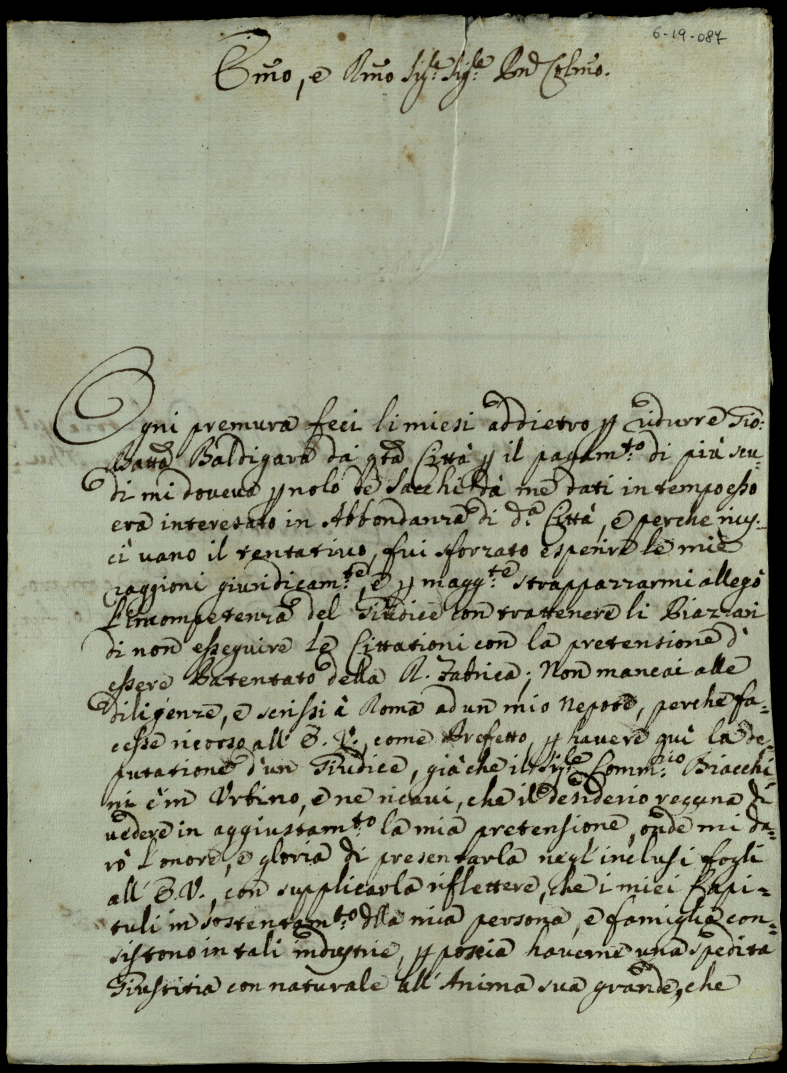 6-19-087
Em̃o, e Rm̃o Sig.r Sig.r Pñe Col̃mo.
Ogni premura feci li mesi addietro p ridurre Gio:
Batta Baldigara da q̃ta Città p il pagam.to di più scu-
di mi doveva p nolo de Sacchi da me dati in tempo esso
era interesato in Abbondanza di d.a Città, e perche riu-
cì vano il tentativo, fui sforzato esperire le mie
raggioni giuridicam.te, e p magg.te strappazzarmi allegò
l'incompetenza del Giudice con trattenere li Biazzari
di non esseguire le Cittationi con la pretentione d'
essere Patentato della R. Fabrica; Non mancai alle
diligenze, e scrissi à Roma ad un mio Nepote, perche fa-
cesse ricorso all' E. V., come Prefetto, p havere quì la de-
putatione d'un Giudice, già che il Sig.r Comm.rio Biacchi-
ni è in Urbino, e ne ricavi, che il desiderio veggure di
vedere in aggiustam.to la mia pretensione, onde mi da-
rò l'onore, e gloria di presentarla negl' inclusi fogli
all' E. V., con supplicarla riflettere, che i miei Capi-
tali in sostentam.to dlla mia persona, e famiglia con-
sistono in tali industrie, p poscia haverne una spedita
Giustitia con naturale all' Anima sua grande, che